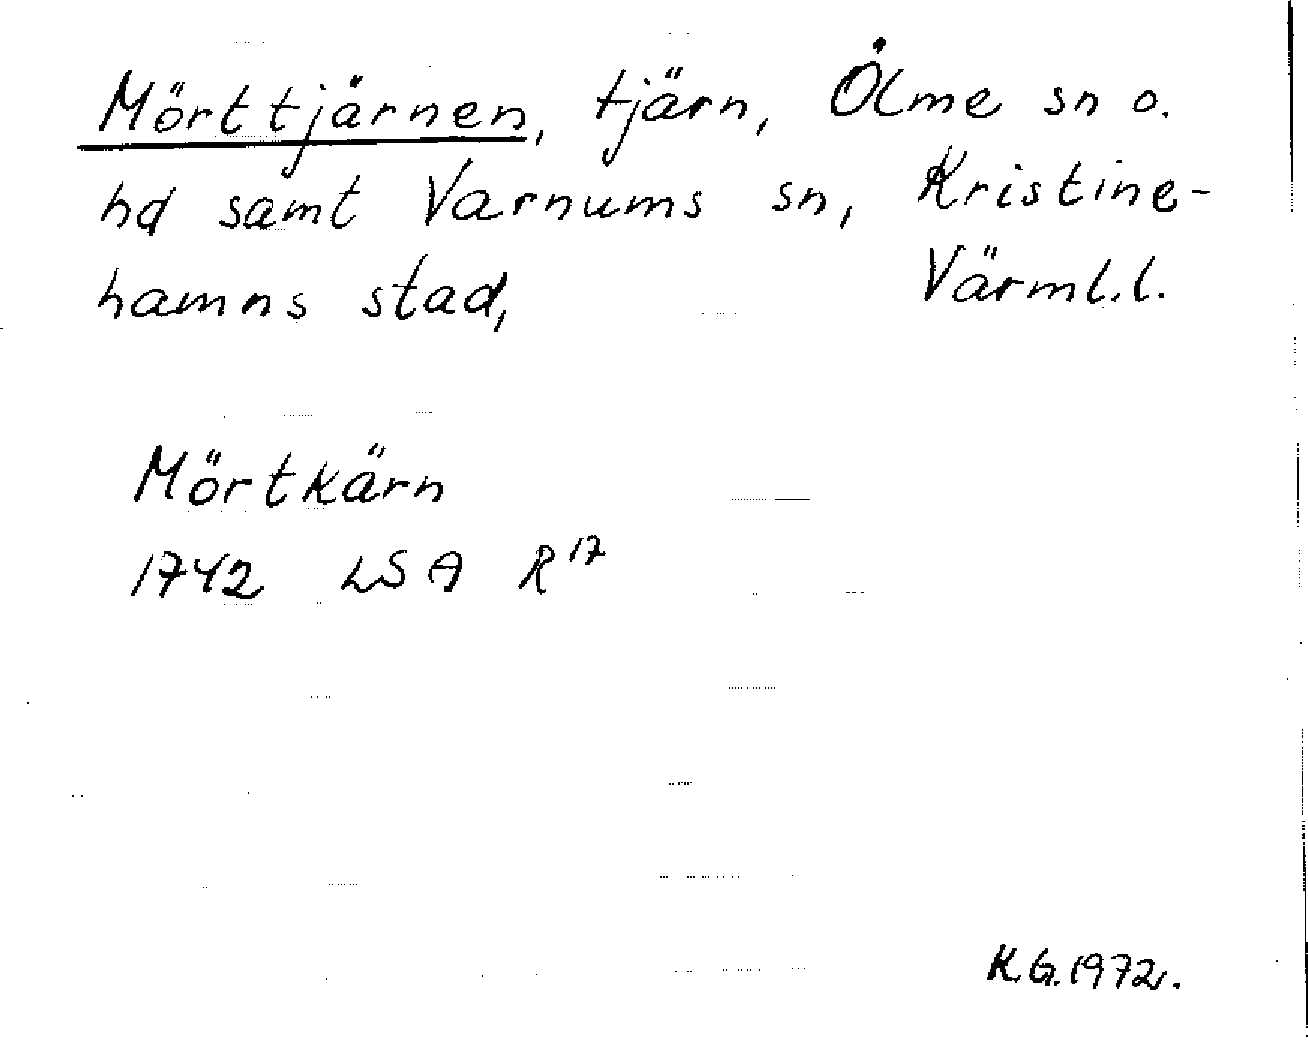 Mörttjärnen, tjärn, Ölme sn o.
hd samt Varnums sn, Kristine-
hamns stad, Värml.l.
Mörtkärn
1742 LSA R¹⁷
K.G.1972.